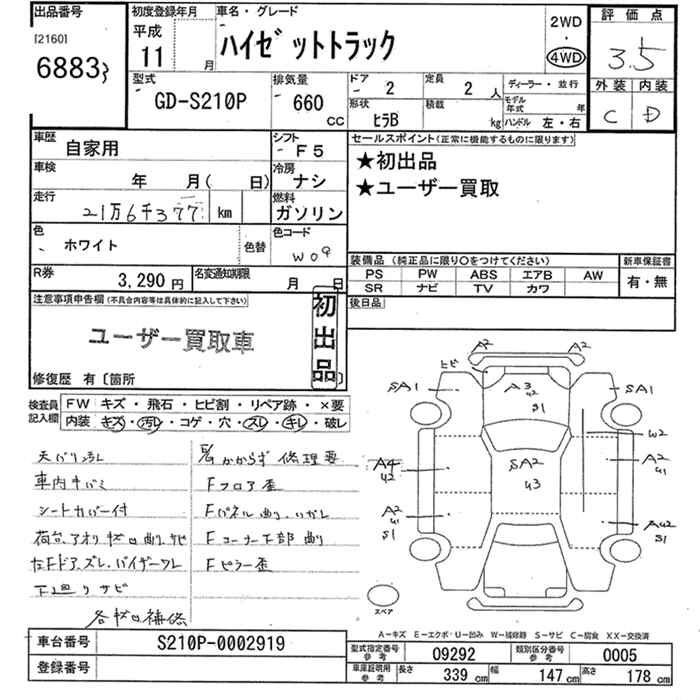 出品番号
[2160]
6883
初度登録年月
平成
11 月
車名・グレード
ハイゼットトラック
2WD
・
4WD
評価点
3.5
外装 内装
C D
型式
GD-S210P
排気量
660
cc
ドア
2
形状
ヒラB
定員
2 人
積載
kg
ディーラー・並行
モデル年式 年
ハンドル 左・右
車歴
自家用
シフト
F5
車検
年 月( 日)
冷房
ナシ
走行
21万6千377 km
燃料
ガソリン
色
ホワイト
色替
色コード
W09
R券
3,290 円
名変通知期限
月 日
セールスポイント(正常に機能するものに限ります)
★初出品
★ユーザー買取
装備品(純正品に限り〇をつけてください)
PS PW ABS エアB AW
SR ナビ TV カワ
新車保証書
有・無
後日品
注意事項申告欄(不具合内容等は具体的に記入して下さい)
ユーザー買取車
初出品
修復歴 有〔箇所 〕
検査員記入欄
FW キズ・飛石・ヒビ割・リペア跡・×要
内装 キズ・汚レ・コゲ・穴・ズレ・キレ・破レ
天バリ汚レ
車内キバミ
シートカバー付
下廻りサビ
各松口補修
修理要
Fフロア歪
Fコーナー下部曲り
Fピラー歪
ヒビ
A2
A2
SA1
A3
U2
S1
SA1
W2
A4
U2
SA2
U3
A2
U1
A2
U1
S1
AU2
S1
スペア
A－キズ E－エクボ・U－凹み W－補修跡 S－サビ C－腐食 XX－交換済
車台番号
S210P-0002919
登録番号
型式指定番号
参考
09292
類別区分番号
参考
0005
車庫証明用
参考
長さ 339 cm 幅 147 cm 高さ 178 cm